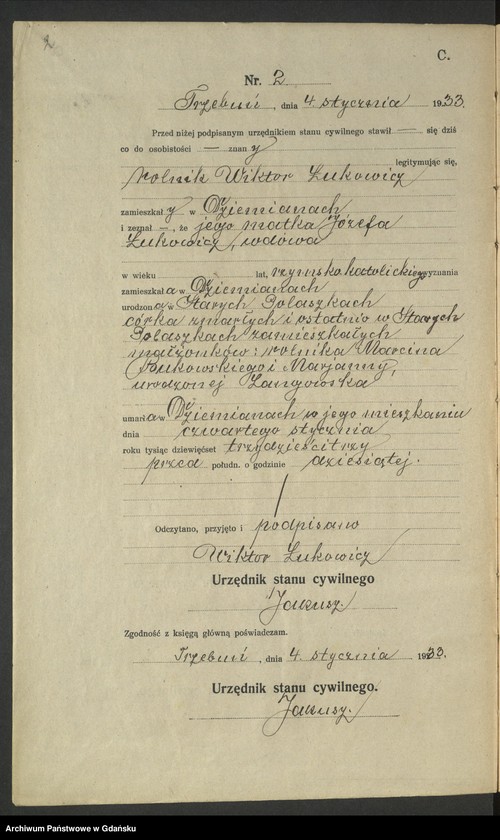 C.
Nr. 2
Trzebuń, dnia 4 stycznia 1933.
Przed niżej podpisanym urzędnikiem stanu cywilnego stawił — się dziś
co do osobistości — znan y
legitymując się,
rolnik Wiktor Łukowicz
zamieszkał y w Dziemianach
i zeznał —, że jego matka Józefa
Łukowicz, wdowa
w wieku lat, rzymsko katolickiego wyznania
zamieszkał a w Dziemianach
urodzon a w Starych Polaszkach
córka zmarłych i ostatnio w Starych
Polaszkach zamieszkałych
małżonków: rolnika Marcina
i Marjanny,
urodzonej
umarł a w Dziemianach w jego mieszkaniu
dnia czwartego stycznia
roku tysiąc dziewięćset trzydzieści trzy
przed połudn. o godzinie dziesiątej.
Odczytano, przyjęto i podpisano
Wiktor Łukowicz
Urzędnik stanu cywilnego
Jakusz.
Zgodność z księgą główną poświadczam.
Trzebuń, dnia 4. stycznia 1933.
Urzędnik stanu cywilnego.
Jakusz.
Archiwum Państwowe w Gdańsku